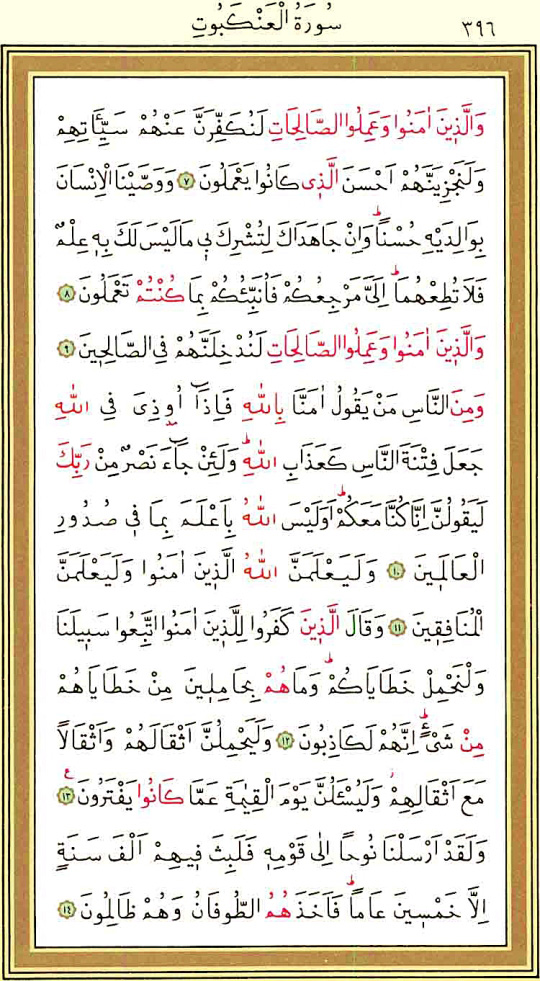 سُورَةُ الْعَنْكَبُوتِ ٣٩٦
وَالَّذ۪ينَ اٰمَنُوا وَعَمِلُوا الصَّالِحَاتِ لَنُكَفِّرَنَّ عَنْهُمْ سَيِّـَٔاتِهِمْ
وَلَنَجْزِيَنَّهُمْ اَحْسَنَ الَّذ۪ي كَانُوا يَعْمَلُونَ ﴿٧﴾ وَوَصَّيْنَا الْاِنْسَانَ
بِوَالِدَيْهِ حُسْنًاۜ وَاِنْ جَاهَدَاكَ لِتُشْرِكَ ب۪ي مَا لَيْسَ لَكَ بِه۪ عِلْمٌ
فَلَا تُطِعْهُمَاۜ اِلَيَّ مَرْجِعُكُمْ فَاُنَبِّئُكُمْ بِمَا كُنْتُمْ تَعْمَلُونَ ﴿٨﴾
وَالَّذ۪ينَ اٰمَنُوا وَعَمِلُوا الصَّالِحَاتِ لَنُدْخِلَنَّهُمْ فِي الصَّالِح۪ينَ ﴿٩﴾
وَمِنَ النَّاسِ مَنْ يَقُولُ اٰمَنَّا بِاللّٰهِ فَاِذَٓا اُو۫ذِيَ فِي اللّٰهِ
جَعَلَ فِتْنَةَ النَّاسِ كَعَذَابِ اللّٰهِۜ وَلَئِنْ جَٓاءَ نَصْرٌ مِنْ رَبِّكَ
لَيَقُولُنَّ اِنَّا كُنَّا مَعَكُمْۜ اَوَلَيْسَ اللّٰهُ بِاَعْلَمَ بِمَا ف۪ي صُدُورِ
الْعَالَم۪ينَ ﴿١٠﴾ وَلَيَعْلَمَنَّ اللّٰهُ الَّذ۪ينَ اٰمَنُوا وَلَيَعْلَمَنَّ
الْمُنَافِق۪ينَ ﴿١١﴾ وَقَالَ الَّذ۪ينَ كَفَرُوا لِلَّذ۪ينَ اٰمَنُوا اتَّبِعُوا سَب۪يلَنَا
وَلْنَحْمِلْ خَطَايَاكُمْۜ وَمَا هُمْ بِحَامِل۪ينَ مِنْ خَطَايَاهُمْ
مِنْ شَيْءٍۜ اِنَّهُمْ لَكَاذِبُونَ ﴿١٢﴾ وَلَيَحْمِلُنَّ اَثْقَالَهُمْ وَاَثْقَالًا
مَعَ اَثْقَالِهِمْۘ وَلَيُسْـَٔلُنَّ يَوْمَ الْقِيٰمَةِ عَمَّا كَانُوا يَفْتَرُونَ۟ ﴿١٣﴾
وَلَقَدْ اَرْسَلْنَا نُوحًا اِلٰى قَوْمِه۪ فَلَبِثَ ف۪يهِمْ اَلْفَ سَنَةٍ
اِلَّا خَمْس۪ينَ عَامًاۜ فَاَخَذَهُمُ الطُّوفَانُ وَهُمْ ظَالِمُونَ ﴿١٤﴾